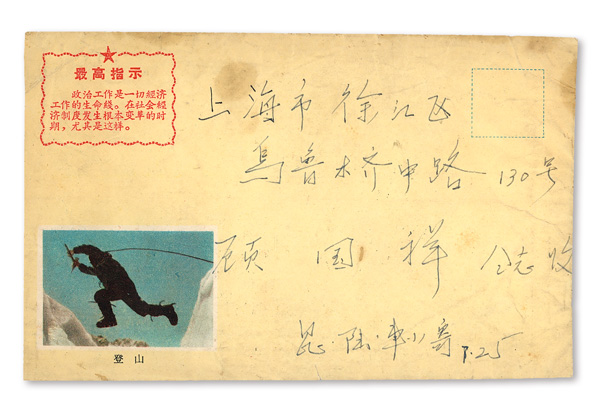 最高指示
政治工作是一切經济
工作的生命綫。在社会經
济制度发生根本变革的时
期，尤其是这样。
上海市徐汇区
烏鲁木齐中路 130号
顾国祥 仝志收
陆 寄 7.25
登山